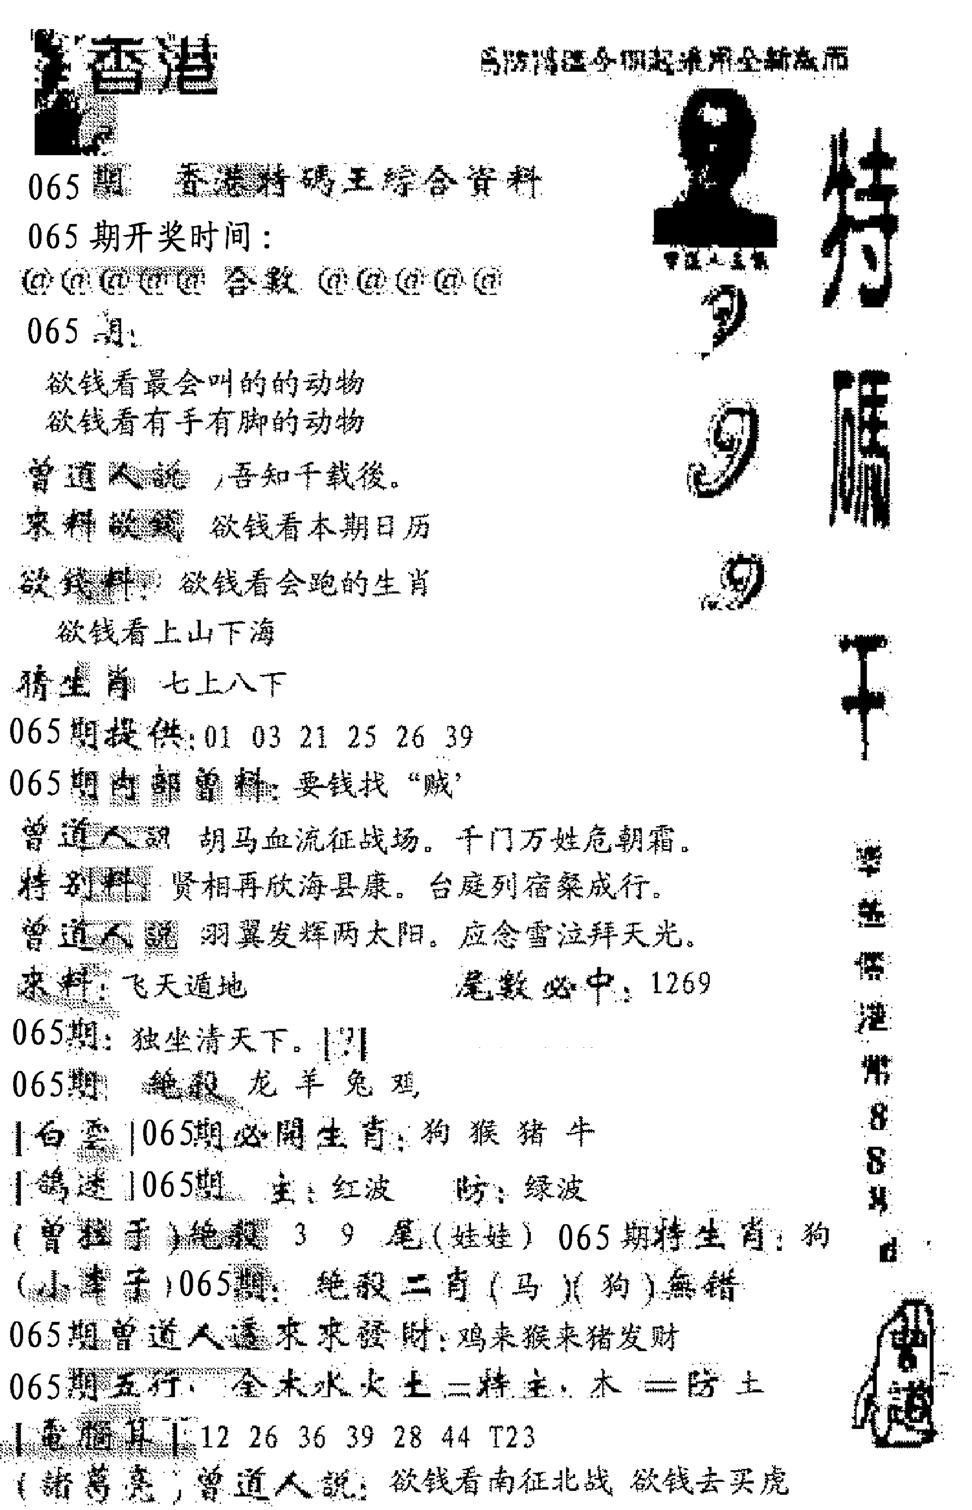 香港
065期 香港特碼王綜合資料
065期开奖时间：
@@@@@ 合數 @@@@@
065期：
欲钱看最会叫的的动物
欲钱看有手有脚的动物
曾道人説 吾知千载後。
來料欲錢 欲钱看本期日历
欲錢料：欲钱看会跑的生肖
欲钱看上山下海
猜生肖 七上八下
065期提供：01 03 21 25 26 39
065期内部曾料：要钱找“贼’
曾道人説 胡马血流征战场。千门万姓危朝霜。
特别料：贤相再欣海县康。台庭列宿粲成行。
曾道人説 羽翼发辉两太阳。应念雪泣拜天光。
來料：飞天遁地 尾數必中：1269
065期：独坐清天下。
065期 絶殺 龙 羊 兔 鸡
|白雲|065期必開生肖：狗 猴 猪 牛
|鴿迷|065期 主：红波 防：绿波
065期特生肖：狗
絶殺 3 9 尾(娃娃)
(小李子)065期：絶殺二肖(马)(狗)無錯
065期曾道人透來來發財：鸡来猴来猪发财
065期五行：金木水火土=特主：木=防土
|電腦算|12 26 36 39 28 44 T23
(諸葛亮)曾道人説：欲钱看南征北战 欲钱去买虎
特
碼
王
9
9
9
港
幣
8
8
8
曾道